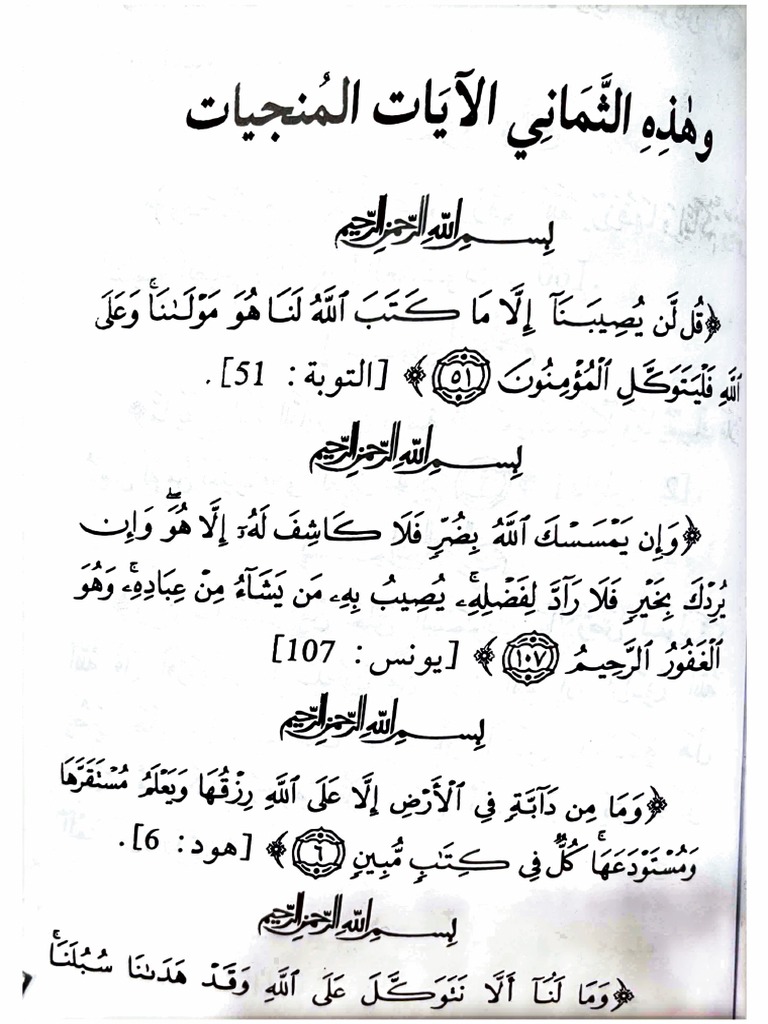 وهٰذِهِ الثَّمَانِي الآيَات المُنجيات
بِسْمِ اللَّهِ الرَّحْمَٰنِ الرَّحِيمِ
﴿قُل لَّن يُصِيبَنَآ إِلَّا مَا كَتَبَ ٱللَّهُ لَنَا هُوَ مَوْلَىٰنَاۚ وَعَلَى
ٱللَّهِ فَلْيَتَوَكَّلِ ٱلْمُؤْمِنُونَ ۝٥١﴾ [التوبة: 51].
بِسْمِ اللَّهِ الرَّحْمَٰنِ الرَّحِيمِ
﴿وَإِن يَمْسَسْكَ ٱللَّهُ بِضُرٍّ فَلَا كَاشِفَ لَهُۥٓ إِلَّا هُوَۖ وَإِن
يُرِدْكَ بِخَيْرٍ فَلَا رَآدَّ لِفَضْلِهِۦۚ يُصِيبُ بِهِۦ مَن يَشَآءُ مِنْ عِبَادِهِۦۚ وَهُوَ
ٱلْغَفُورُ ٱلرَّحِيمُ ۝١٠٧﴾ [يونس: 107]
بِسْمِ اللَّهِ الرَّحْمَٰنِ الرَّحِيمِ
﴿وَمَا مِن دَآبَّةٍ فِي ٱلْأَرْضِ إِلَّا عَلَى ٱللَّهِ رِزْقُهَا وَيَعْلَمُ مُسْتَقَرَّهَا
وَمُسْتَوْدَعَهَاۚ كُلٌّ فِي كِتَٰبٍ مُّبِينٍ ۝٦﴾ [هود: 6].
بِسْمِ اللَّهِ الرَّحْمَٰنِ الرَّحِيمِ
﴿وَمَا لَنَآ أَلَّا نَتَوَكَّلَ عَلَى ٱللَّهِ وَقَدْ هَدَىٰنَا سُبُلَنَاۚ